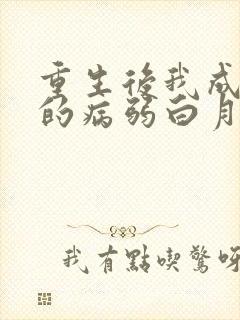 重生後我成
的病弱白月
我有點喫驚呀